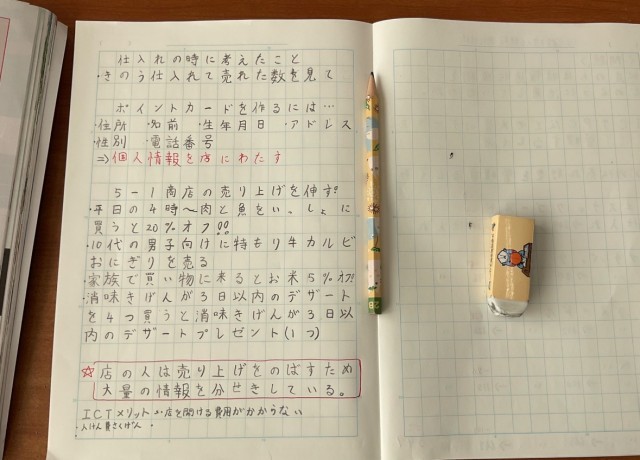 仕入れの時に考えたこと
・きのう仕入れて売れた数を見て
ポイントカードを作るには…
・住所 ・名前 ・生年月日 ・アドレス
・性別 ・電話番号
⇒個人情報を店にわたす
5-1商店の売り上げを伸す!!
・平日の4時〜肉と魚をい。しょに
買うと20%オフ!!
・10代の男子向けに特もり牛カルビ
おにぎりを売る
・家族で買い物に来るとお米5%オフ!
・消味きげんが3日以内のデザート
を4つ買うと消味きげんが3日以
内のデザートプレゼント(1つ)
☆店の人は売り上げをのばすため
大量の情報を分せきしている。
ICTメリット→・店を開ける費用がかからない
・人けん費さくげん